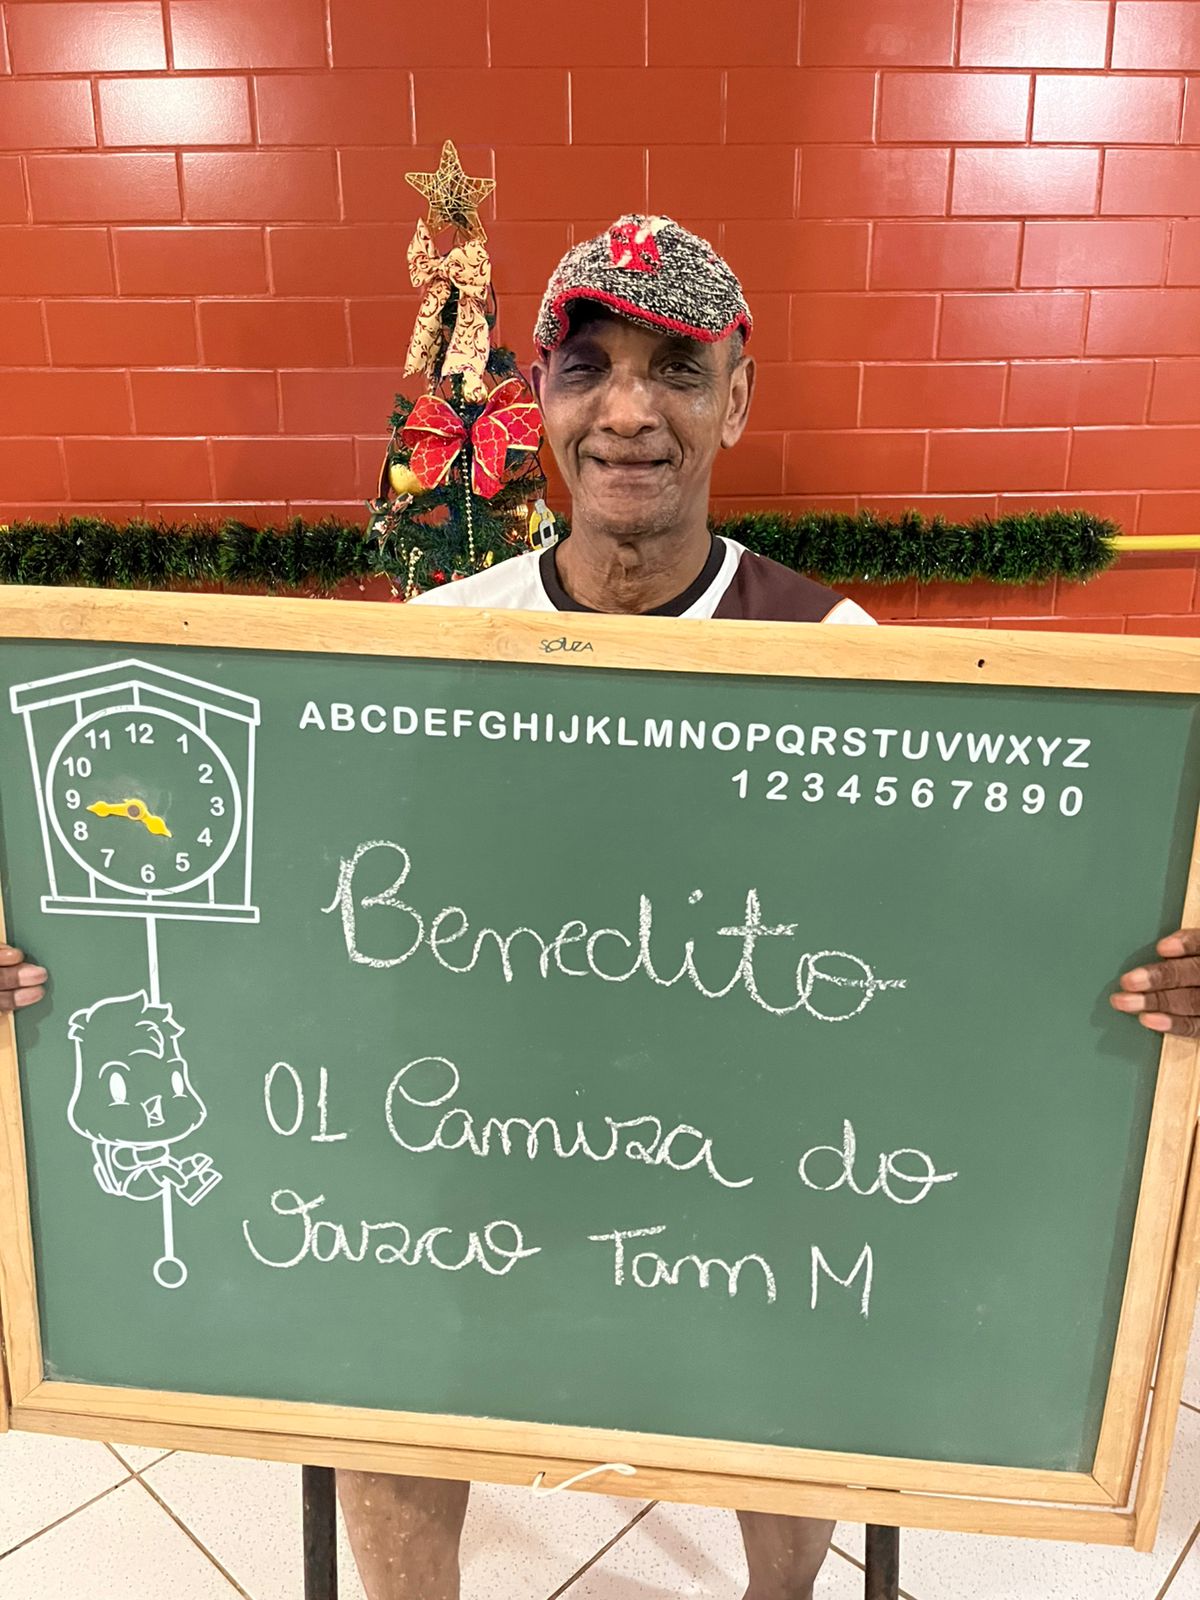 SOUZA
ABCDEFGHIJKLMNOPQRSTUVWXYZ
1234567890
11 12 1
10 2
9 3
8 4
7 6 5
Benedito
01 Camisa do
Vasco Tam M